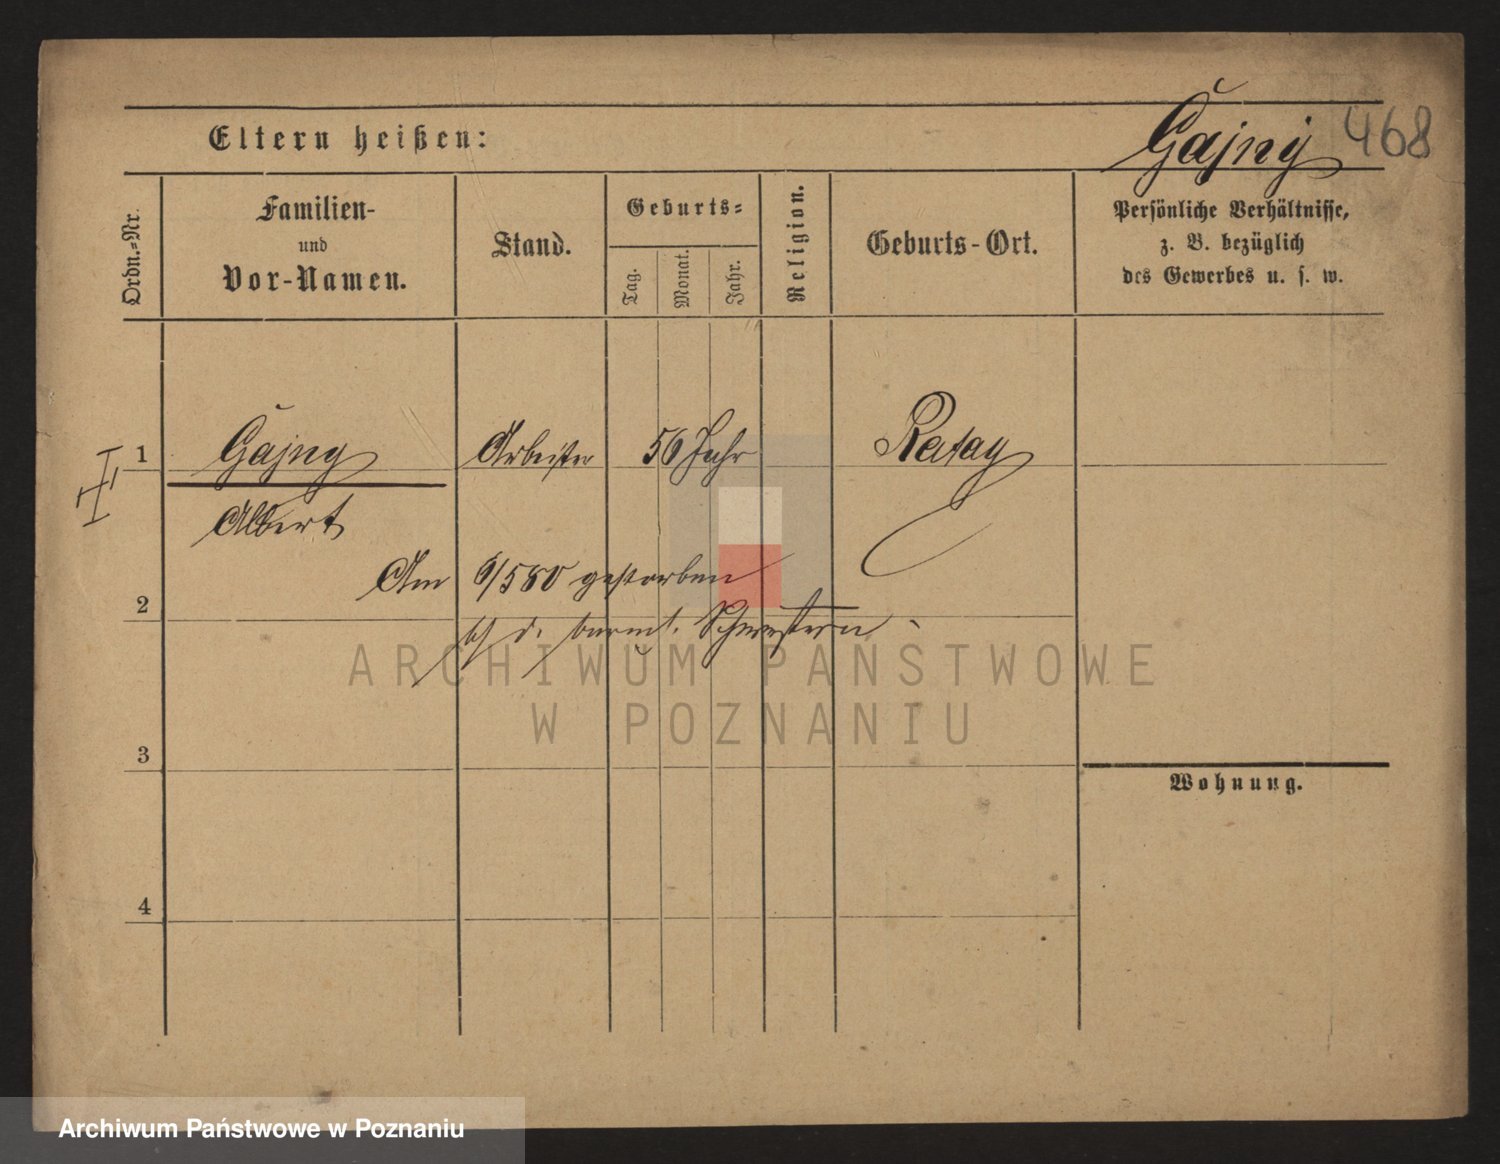 Gajny 468
Eltern heißen:
Ordn.-Nr.
Familien-
und
Vor-Namen.
Stand.
Geburts-
Tag.
Monat.
Jahr.
Religion.
Geburts-Ort.
Persönliche Verhältnisse,
z. B. bezüglich
des Gewerbes u. s. w.
1 Gajny Arbeiter 56 Jahr Ratay
Albert
Am 6/5 80 gestorben
2
b/ d. barmh. Schwestern
ARCHIWUM PAŃSTWOWE
W POZNANIU
3
Wohnung.
4
Archiwum Państwowe w Poznaniu